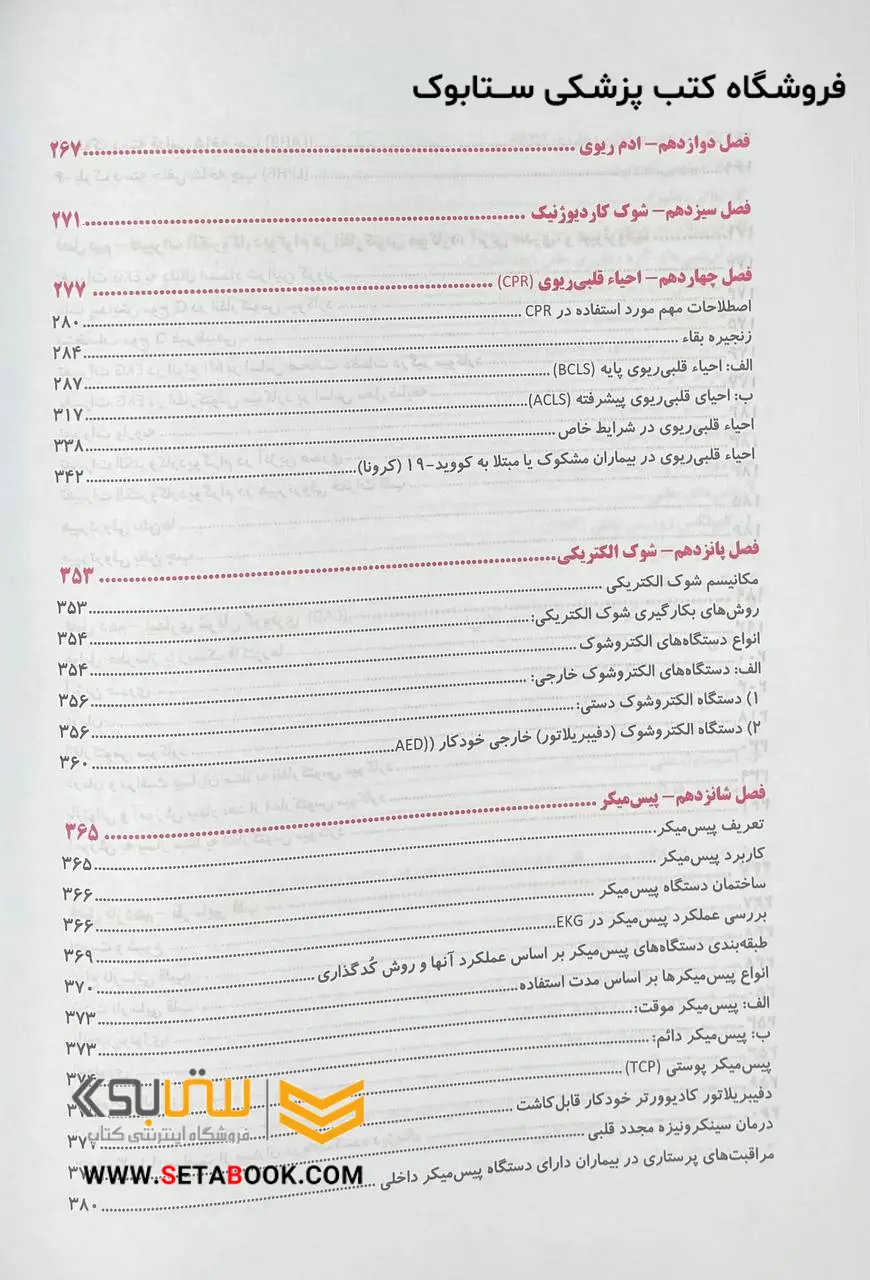 فروشگاه کتب پزشکی ستابوک
فصل دوازدهم- ادم ریوی ........ ۲۶۷
فصل سیزدهم- شوک کاردیوژنیک ........ ۲۷۱
فصل چهاردهم- احیاء قلبی‌ریوی (CPR) ........ ۲۷۷
اصطلاحات مهم مورد استفاده در CPR ........ ۲۸۰
زنجیره بقاء ........ ۲۸۴
الف: احیاء قلبی‌ریوی پایه (BCLS) ........ ۲۸۷
ب: احیای قلبی‌ریوی پیشرفته (ACLS) ........ ۳۱۷
احیاء قلبی‌ریوی در شرایط خاص ........ ۳۳۸
احیاء قلبی‌ریوی در بیماران مشکوک یا مبتلا به کووید-۱۹ (کرونا) ........ ۳۴۲
فصل پانزدهم- شوک الکتریکی ........ ۳۵۳
مکانیسم شوک الکتریکی ........ ۳۵۳
روش‌های بکارگیری شوک الکتریکی: ........ ۳۵۴
انواع دستگاه‌های الکتروشوک ........ ۳۵۴
الف: دستگاه‌های الکتروشوک خارجی: ........ ۳۵۶
۱) دستگاه الکتروشوک دستی: ........ ۳۵۶
۲) دستگاه الکتروشوک (دفیبریلاتور) خارجی خودکار ((AED ........ ۳۶۰
فصل شانزدهم- پیس‌میکر ........ ۳۶۵
تعریف پیس‌میکر ........ ۳۶۵
کاربرد پیس‌میکر ........ ۳۶۶
ساختمان دستگاه پیس‌میکر ........ ۳۶۶
بررسی عملکرد پیس‌میکر در EKG ........ ۳۶۹
طبقه‌بندی دستگاه‌های پیس‌میکر بر اساس عملکرد آنها و روش کُدگذاری ........ ۳۷۰
انواع پیس‌میکرها بر اساس مدت استفاده ........ ۳۷۳
الف: پیس‌میکر موقت: ........ ۳۷۳
ب: پیس‌میکر دائم: ........ ۳۷۴
پیس‌میکر پوستی (TCP) ........
دفیبریلاتور کادیوورتر خودکار قابل‌کاشت ........
درمان سینکرونیزه مجدد قلبی ........
مراقبت‌های پرستاری در بیماران دارای دستگاه پیس‌میکر داخلی ........ ۳۸۰
ستابوک
فروشگاه اینترنتی کتاب
WWW.SETABOOK.COM